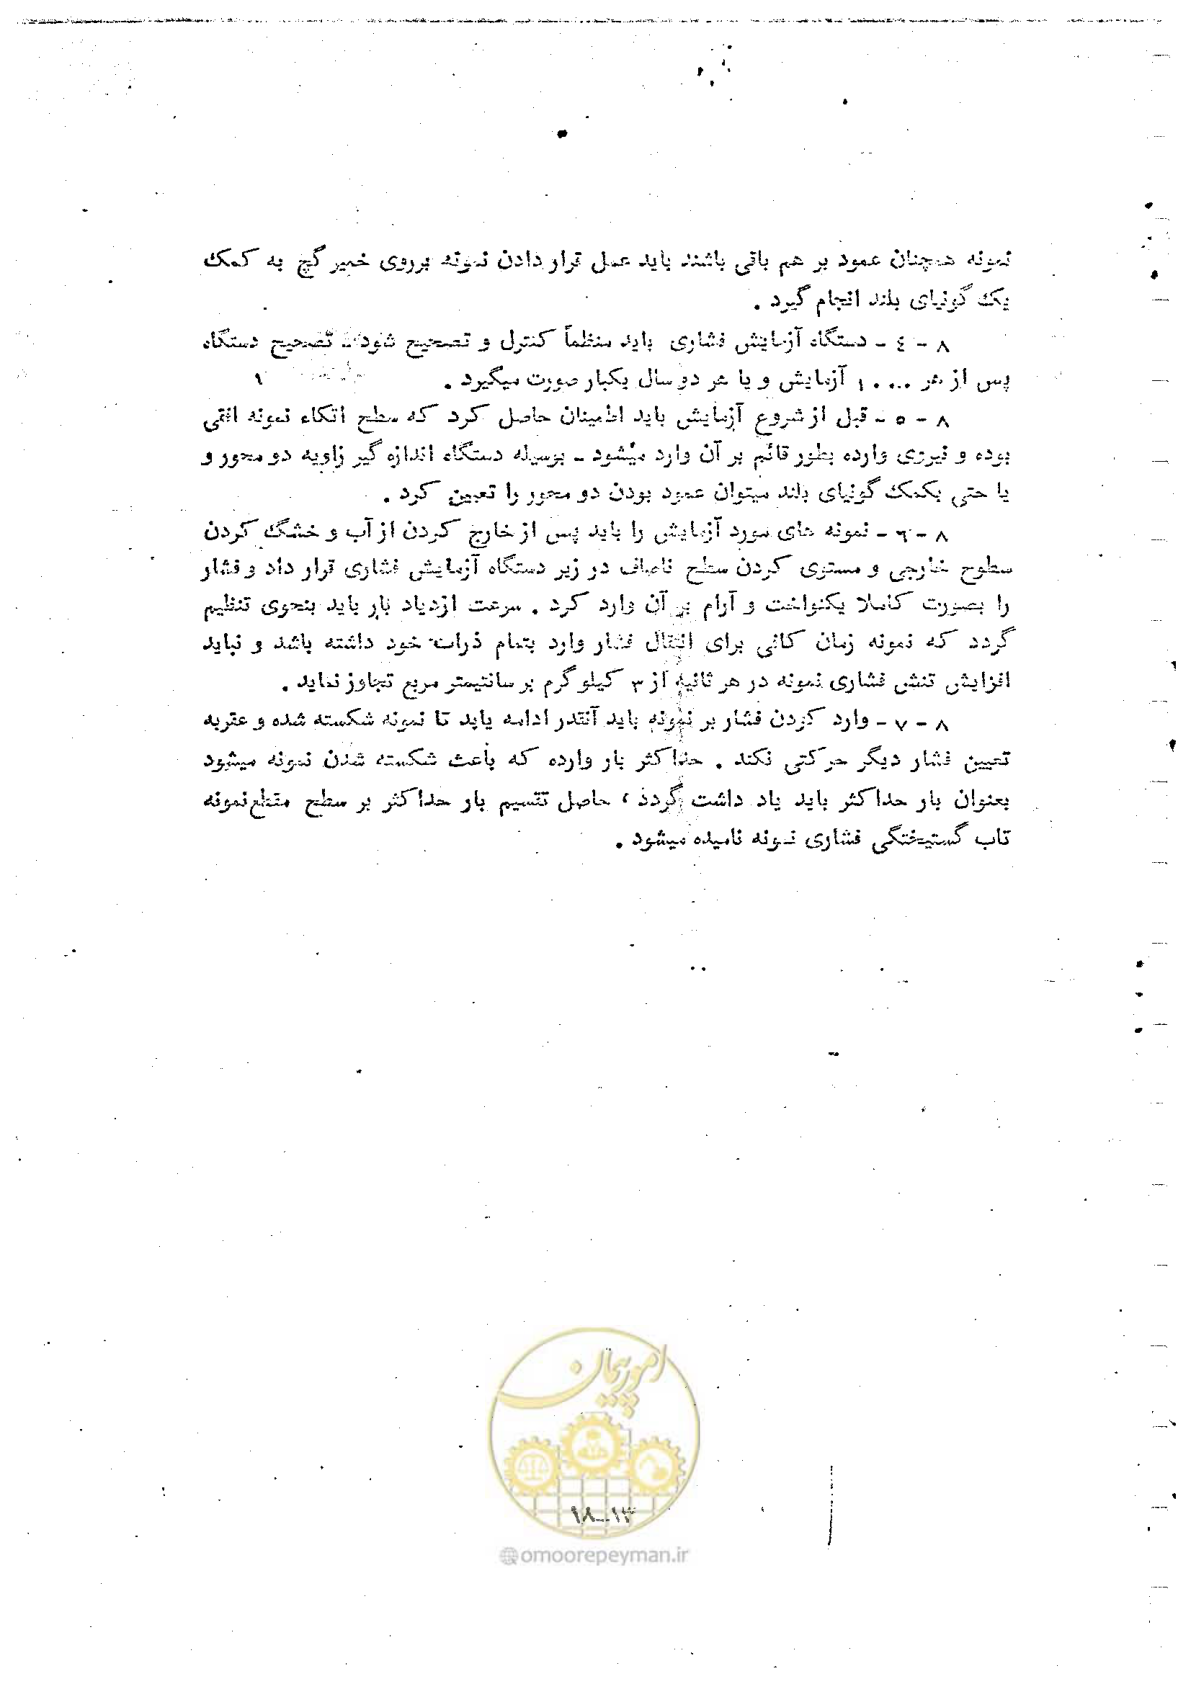 نمونه همچنان عمود بر هم باقی باشند باید عمل قرار دادن نمونه برروی خمیر گچ به کمک
یک گونیای بلند انجام گیرد .
۸ - ٤ - دستگاه آزمایش فشاری باید منظماً کنترل و تصحیح شود - تصحیح دستگاه
پس از هر ۱۰۰۰ آزمایش و یا هر دو سال یکبار صورت میگیرد .
۸ - ۵ - قبل از شروع آزمایش باید اطمینان حاصل کرد که سطح اتکاء نمونه افقی
بوده و نیروی وارده بطور قائم بر آن وارد میشود - بوسیله دستگاه اندازه گیر زاویه دو محور و
یا حتی بکمک گونیای بلند میتوان عمود بودن دو محور را تعیین کرد .
۸ - ٦ - نمونه های مورد آزمایش را باید پس از خارج کردن از آب و خشگ کردن
سطوح خارجی و مستوی کردن سطح ناصاف در زیر دستگاه آزمایش فشاری قرار داد و فشار
را بصورت کاملا یکنواخت و آرام بر آن وارد کرد . سرعت ازدیاد بار باید بنحوی تنظیم
گردد که نمونه زمان کافی برای انتقال فشار وارد بتمام ذرات خود داشته باشد و نباید
افزایش تنش فشاری نمونه در هر ثانیه از ۳ کیلوگرم بر سانتیمتر مربع تجاوز نماید .
۸ - ۷ - وارد کردن فشار بر نمونه باید آنقدر ادامه یابد تا نمونه شکسته شده و عقربه
تعیین فشار دیگر حرکتی نکند . حداکثر بار وارده که باعث شکسته شدن نمونه میشود
بعنوان بار حداکثر باید یاد داشت گردد ، حاصل تقسیم بار حداکثر بر سطح مقطع نمونه
تاب گسیختگی فشاری نمونه نامیده میشود .
امور پیمان
۱۸-۱۳
@omoorepeyman.ir